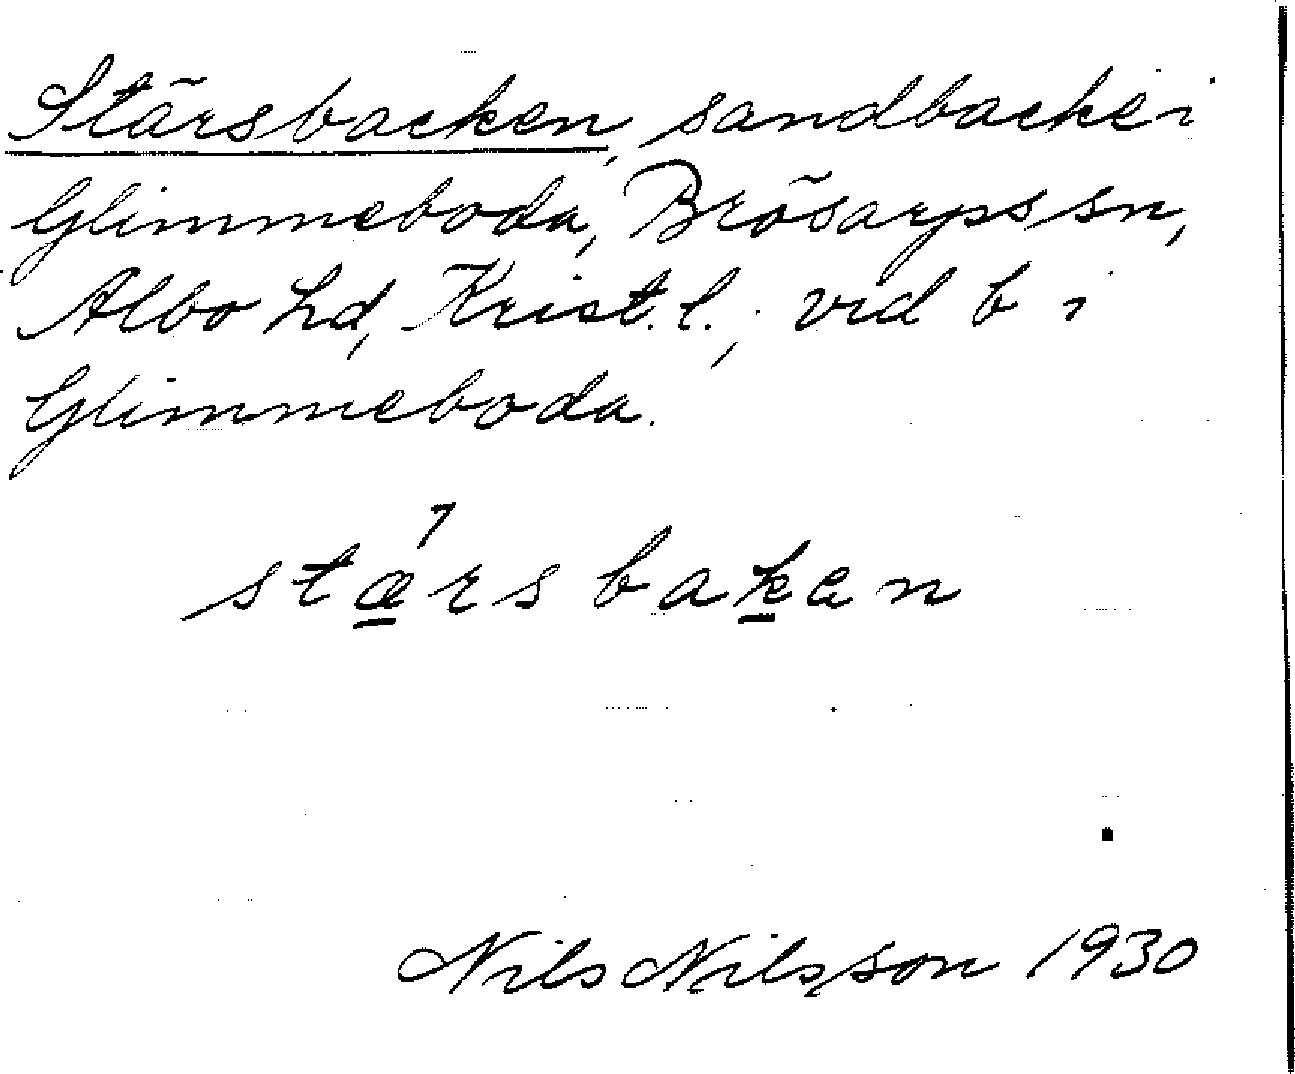 Stärsbacken, sandbacke i
Glimmeboda, Brösarps sn,
Albo hd, Krist. l., vid b i
Glimmeboda.
stæ̱´rs bak̲en
Nils Nilsson 1930